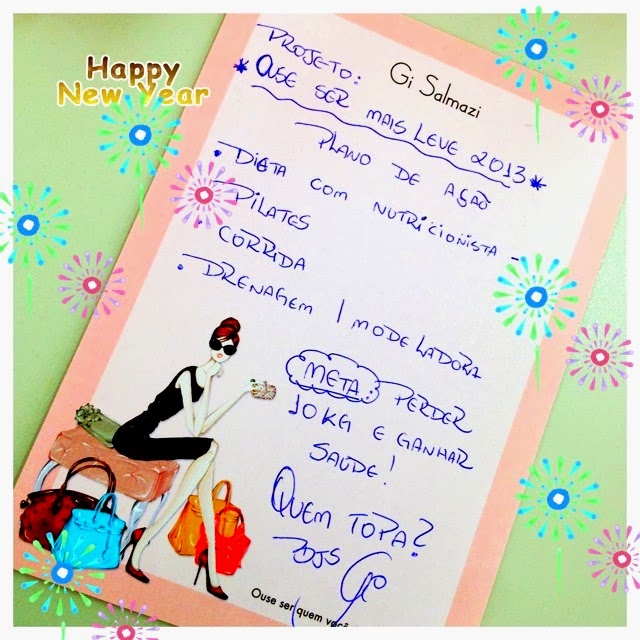 Happy
New Year
Gi Salmazi
PROJETO:
* OUSE SER MAIS LEVE 2013 *
PLANO DE AÇÃO
. DIETA COM NUTRICIONISTA -
. PILATES
. CORRIDA
. DRENAGEM / MODELADORA
META: PERDER
10KG E GANHAR
SAÚDE!
QUEM TOPA?
BJS Gi
Ouse ser quem você